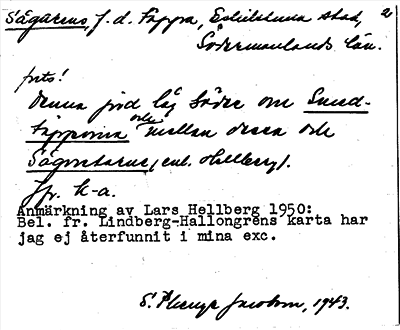 Sågarens, f. d. täppa, Eskilstuna stad, 2
Södermanlands län.
forts!
Denna jord låg söder om Smed-
täpporna och mellan dessa och
Sågaretarne, enl. Hellberg.
Jfr. k-a.
Anmärkning av Lars Hellberg 1950:
Bel. fr. Lindberg-Hallongrens karta har
jag ej återfunnit i mina exc.
S. Jacobson, 1943.